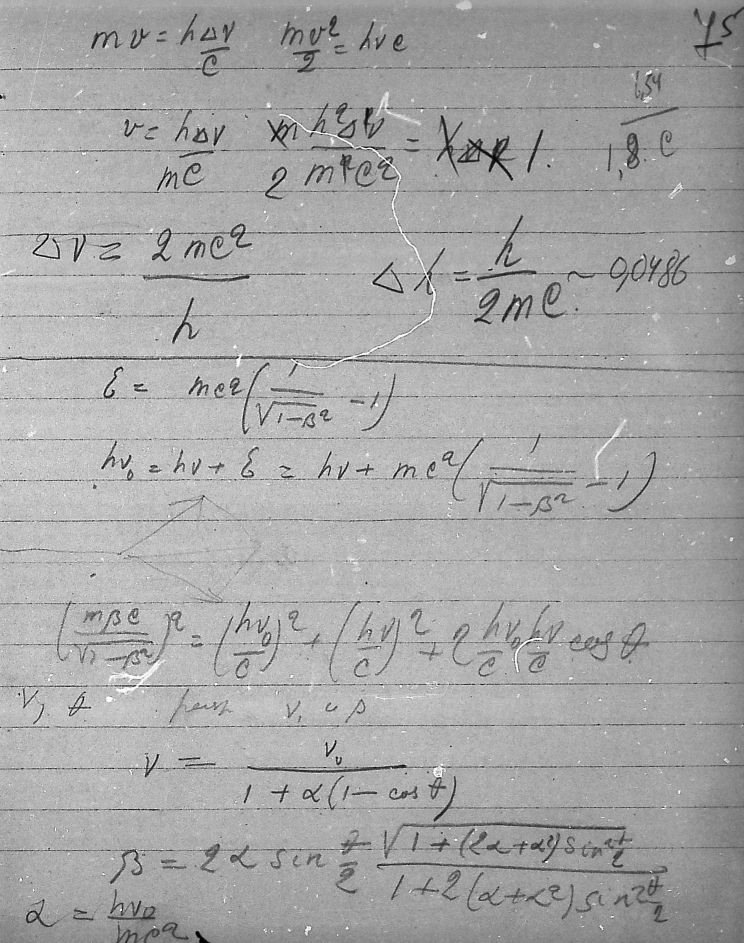 75
mv = hΔν/c   mv²/2 = hνc
v = hΔν/mc   m h²Δν/2 m²c² = 1.   6,54/1,8.c
Δν = 2mc²/h   Δλ = h/2mc ~ 0,0486
ε = mc²(1/√1-β² - 1)
hν₀ = hν + ε = hν + mc²(1/√1-β² - 1)
(mβc/√1-β²)² = (hν₀/c)² + (hν/c)² + 2 hν₀/c hν/c cos θ
ν, θ   ν, и β
ν = ν₀/1 + α(1 - cos θ)
β = 2α sin θ/2 √1+(2α+α²) sin² θ/2 / 1+2(α+α²) sin² θ/2
α = hν₀/mc²